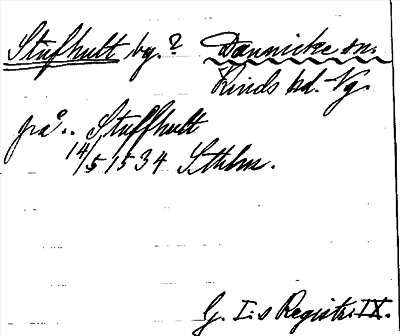 Stufhult by.? Dannicke sn.
Kinds hd. Vg.
på.. Stuffhult
14/5 1534 Sthlm.
G. I:s Registr. IX.